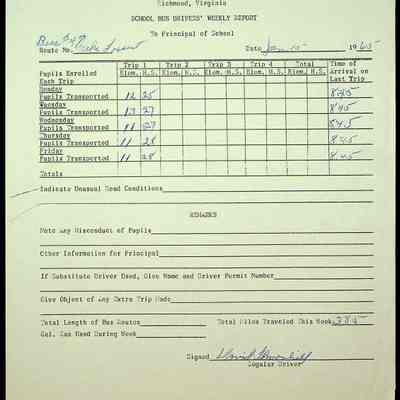 Richmond, Virginia
SCHOOL BUS DRIVERS' WEEKLY REPORT
To Principal of School
Bus #47
Route No. Date Jan 15 1965
Trip 1 Trip 2 Trip 3 Trip 4 Total Time of
Pupils Enrolled Elem. H.S. Elem. H.S. Elem. H.S. Elem. H.S. Elem. H.S. Arrival on
Each Trip Last Trip
Monday
Pupils Transported 12 25 8:45
Tuesday
Pupils Transported 13 27 8:45
Wednesday
Pupils Transported 11 27 8:45
Thursday
Pupils Transported 11 28 8:45
Friday
Pupils Transported 11 28 8:45
Totals
Indicate Unusual Road Conditions
REMARKS
Note Any Misconduct of Pupils
Other Information for Principal
If Substitute Driver Used, Give Name and Driver Permit Number
Give Object of Any Extra Trip Made
Total Length of Bus Routes Total Miles Traveled This Week 385
Gal. Gas Used During Week
Signed David
Regular Driver